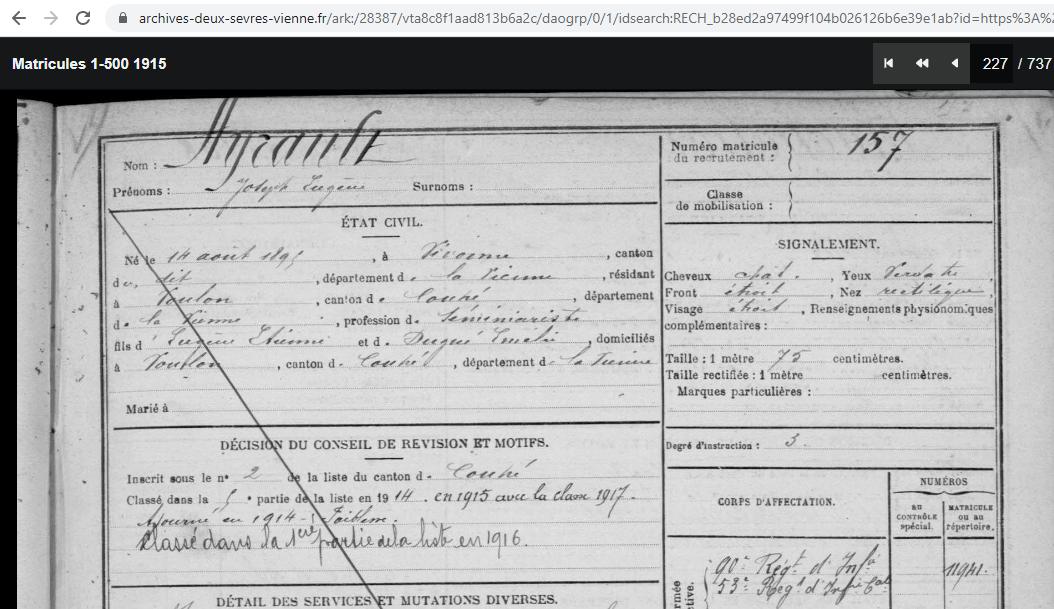 archives-deux-sevres-vienne.fr/ark:/28387/vta8c8f1aad813b6a2c/daogrp/0/1/idsearch:RECH_b28ed2a97499f104b026126b6e39e1ab?id=https%3A%2
Matricules 1-500 1915
227 / 737
Nom : Ayrault
Prénoms : Joseph Eugène Surnoms :
ÉTAT CIVIL.
Né le 14 août 1895, à Vivonne, canton
du dit, département de la Vienne, résidant
à Voulon, canton de Couhé, département
de la Vienne, profession de Séminariste
fils d' Eugène Etienne et de Dugué, domiciliés
à Voulon, canton de Couhé, département de la Vienne
Marié à
DÉCISION DU CONSEIL DE REVISION ET MOTIFS.
Inscrit sous le n° 2 de la liste du canton de Couhé
Classé dans la 5e partie de la liste en 1914. en 1915 avec la classe 1917.
Ajourné en 1914 -
Classé dans la 1ère partie de la liste en 1916.
DÉTAIL DES SERVICES ET MUTATIONS DIVERSES.
Numéro matricule du recrutement : 157
Classe de mobilisation :
SIGNALEMENT.
Cheveux chât., Yeux Verdâtre
Front étroit, Nez rectiligne,
Visage étroit, Renseignements physionomiques
complémentaires :
Taille : 1 mètre 75 centimètres.
Taille rectifiée : 1 mètre centimètres.
Marques particulières :
Degré d'instruction : 3.
CORPS D'AFFECTATION.
NUMÉROS
au CONTRÔLE spécial.
MATRICULE ou au répertoire.
90e Régt d'Infie 11941.
53e Régt d'Infie Cale